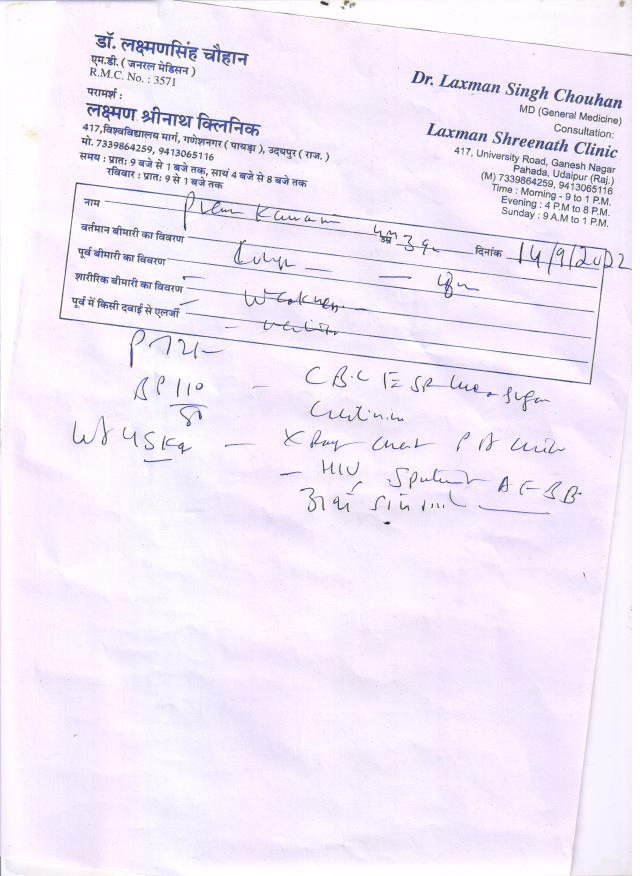 डॉ. लक्ष्मणसिंह चौहान
एम.डी. ( जनरल मेडिसन )
R.M.C. No. : 3571
परामर्श :
लक्ष्मण श्रीनाथ क्लिनिक
417,विश्वविद्यालय मार्ग, गणेशनगर ( पायड़ा ), उदयपुर ( राज. )
मो. 7339864259, 9413065116
समय : प्रातः 9 बजे से 1 बजे तक, सायं 4 बजे से 8 बजे तक
रविवार : प्रातः 9 से 1 बजे तक
Dr. Laxman Singh Chouhan
MD (General Medicine)
Consultation:
Laxman Shreenath Clinic
417, University Road, Ganesh Nagar
Pahada, Udaipur (Raj.)
(M) 7339864259, 9413065116
Time : Morning - 9 to 1 P.M.
Evening : 4 P.M to 8 P.M.
Sunday : 9 A.M to 1 P.M.
नाम उम्र दिनांक 14/9/2022
वर्तमान बीमारी का विवरण
पूर्व बीमारी का विवरण
शारीरिक बीमारी का विवरण Weakness
पूर्व में किसी दवाई से एलर्जी
BP 110/80 CBC ESR Sugar
Wt 45 Kg X Ray Chest PA
HIV Sputum AFB